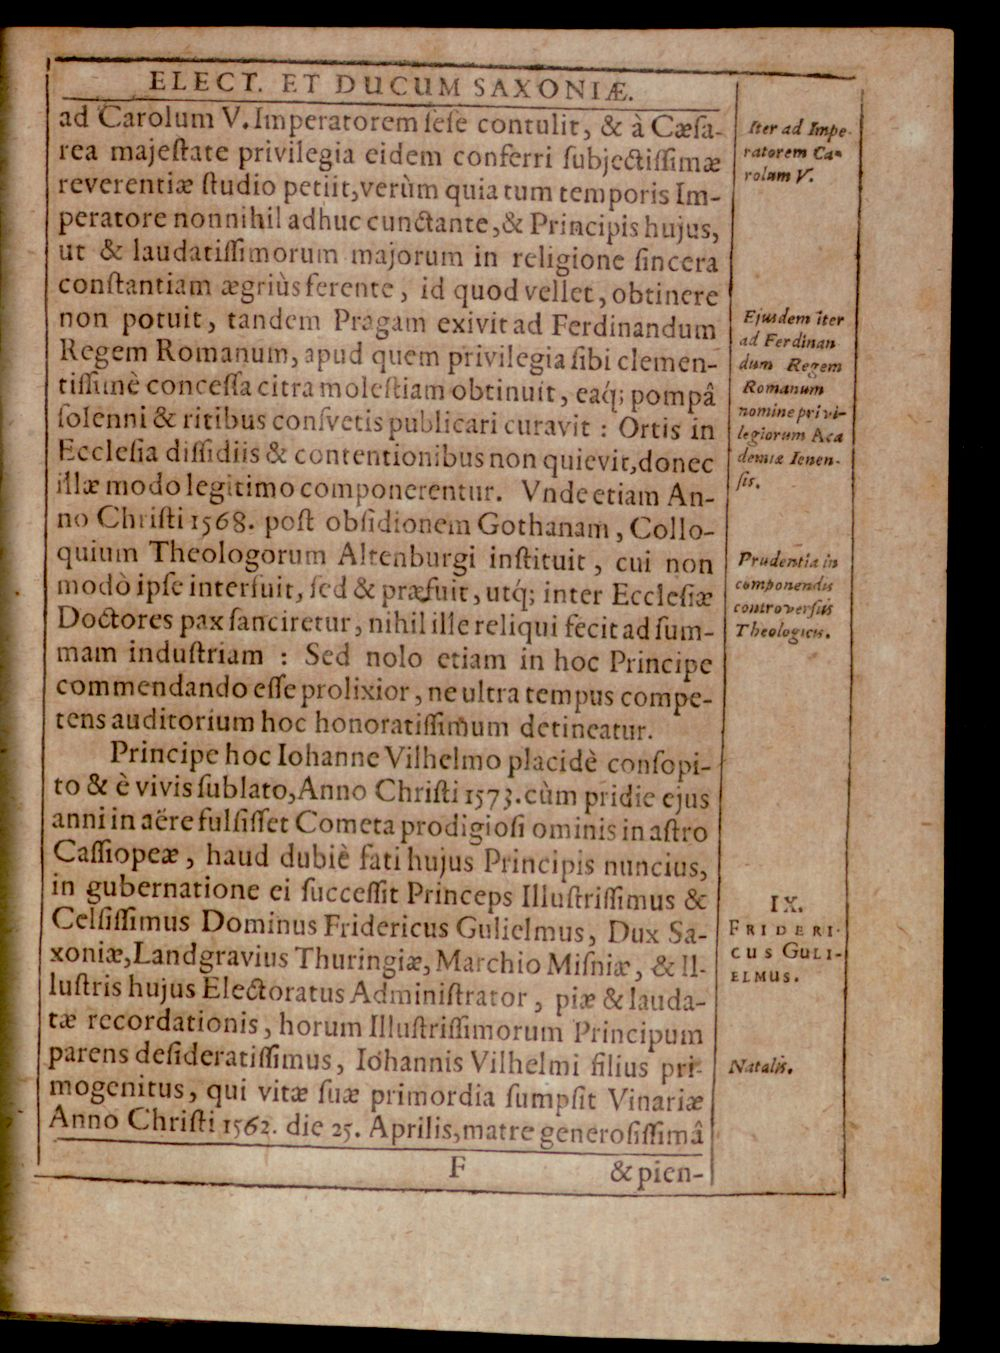 ELECT. ET DUCUM SAXONIÆ.
ad Carolum V. Imperatorem ſeſe contulit, & à Cæſa-
rea majeſtate privilegia eidem conferri ſubjectiſſimæ
reverentiæ ſtudio petiit, verùm quia tum temporis Im-
peratore nonnihil adhuc cunctante, & Principis hujus,
ut & laudatiſſimorum majorum in religione ſincera
conſtantiam ægriùs ferente, id quod vellet, obtinere
non potuit, tandem Pragam exivit ad Ferdinandum
Regem Romanum, apud quem privilegia ſibi clemen-
tiſſimè conceſſa citra moleſtiam obtinuit, eaq́; pompâ
ſolenni & ritibus conſvetis publicari curavit : Ortis in
Eccleſia diſſidiis & contentionibus non quievit, donec
illæ modo legitimo componerentur. Vnde etiam An-
no Chriſti 1568. poſt obſidionem Gothanam, Collo-
quium Theologorum Altenburgi inſtituit, cui non
modò ipſe interfuit, ſed & præfuit, utq́; inter Eccleſiæ
Doctores pax ſanciretur, nihil ille reliqui fecit ad ſum-
mam induſtriam : Sed nolo etiam in hoc Principe
commendando eſſe prolixior, ne ultra tempus compe-
tens auditorium hoc honoratiſſimum detineatur.
Principe hoc Iohanne Vilhelmo placidè conſopi-
to & è vivis ſublato, Anno Chriſti 1573. cùm pridie ejus
anni in aëre fulſiſſet Cometa prodigioſi ominis in aſtro
Caſſiopeæ, haud dubiè fati hujus Principis nuncius,
in gubernatione ei ſucceſſit Princeps Illuſtriſſimus &
Celſiſſimus Dominus Fridericus Gulielmus, Dux Sa-
xoniæ, Landgravius Thuringiæ, Marchio Miſniæ, & Il-
luſtris hujus Electoratus Adminiſtrator, piæ & lauda-
tæ recordationis, horum Illuſtriſſimorum Principum
parens deſideratiſſimus, Iohannis Vilhelmi filius pri-
mogenitus, qui vitæ ſuæ primordia ſumpſit Vinariæ
Anno Chriſti 1562. die 25. Aprilis, matre generoſiſſimâ
F & pien-
Iter ad Impe-
ratorem Ca-
rolum V.
Ejusdem iter
ad Ferdinan
dum Regem
Romanum
nomine privi-
legiorum Aca
demiæ Ienen-
ſis.
Prudentia in
componendis
controverſiis
Theologicis.
IX.
FRIDERI-
CUS GULI-
ELMUS.
Natalis.